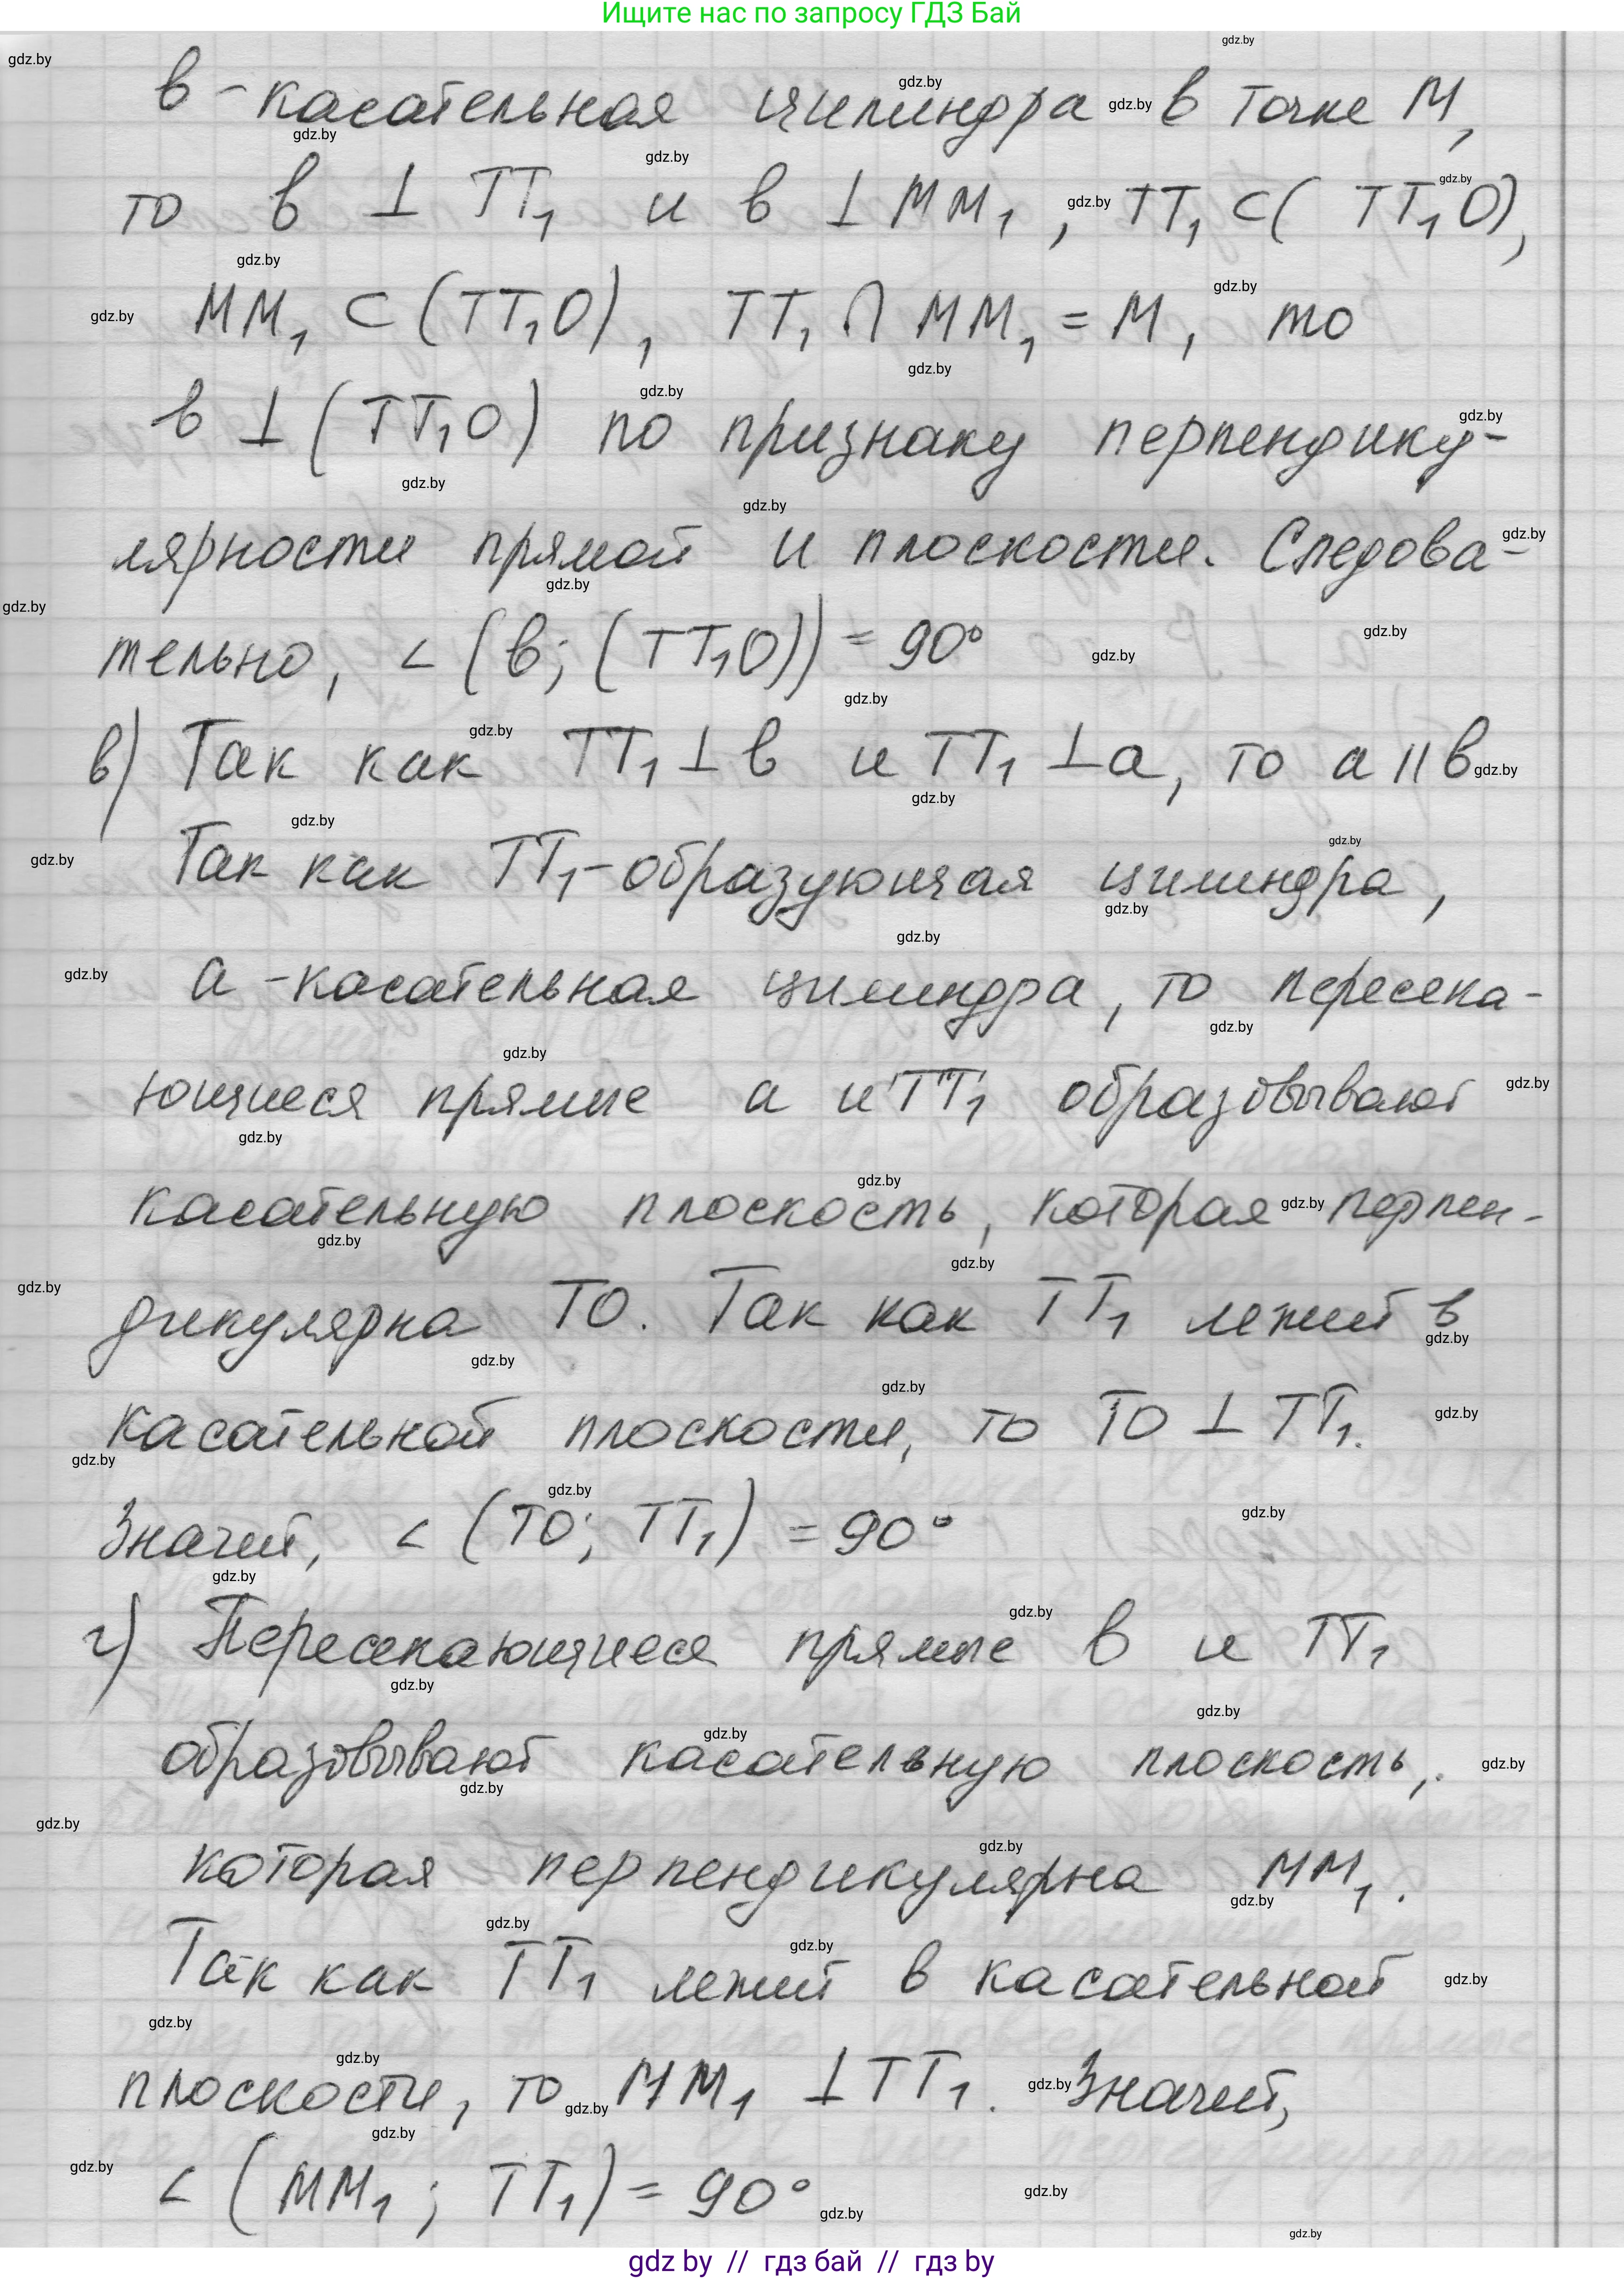 Ищите нас по запросу ГДЗ Бай
в - касательная цилиндра в точке М,
то в ⊥ ТТ₁ и в ⊥ ММ₁, ТТ₁ ⊂ (ТТ₁О),
ММ₁ ⊂ (ТТ₁О), ТТ₁ ∩ ММ₁ = М, то
в ⊥ (ТТ₁О) по признаку перпендику-
лярности прямой и плоскости. Следова-
тельно, ∠ (в; (ТТ₁О)) = 90°
в) Так как ТТ₁ ⊥ в и ТТ₁ ⊥ а, то а || в
Так как ТТ₁ - образующая цилиндра,
а - касательная цилиндра, то пересека-
ющиеся прямые а и ТТ₁ образовывают
касательную плоскость, которая перпен-
дикулярна ТО. Так как ТТ₁ лежит в
касательной плоскости, то ТО ⊥ ТТ₁.
Значит, ∠ (ТО; ТТ₁) = 90°
г) Пересекающиеся прямые в и ТТ₁
образовывают касательную плоскость,
которая перпендикулярна ММ₁.
Так как ТТ₁ лежит в касательной
плоскости, то ММ₁ ⊥ ТТ₁. Значит,
∠ (ММ₁; ТТ₁) = 90°
gdz by // гдз бай // гдз by